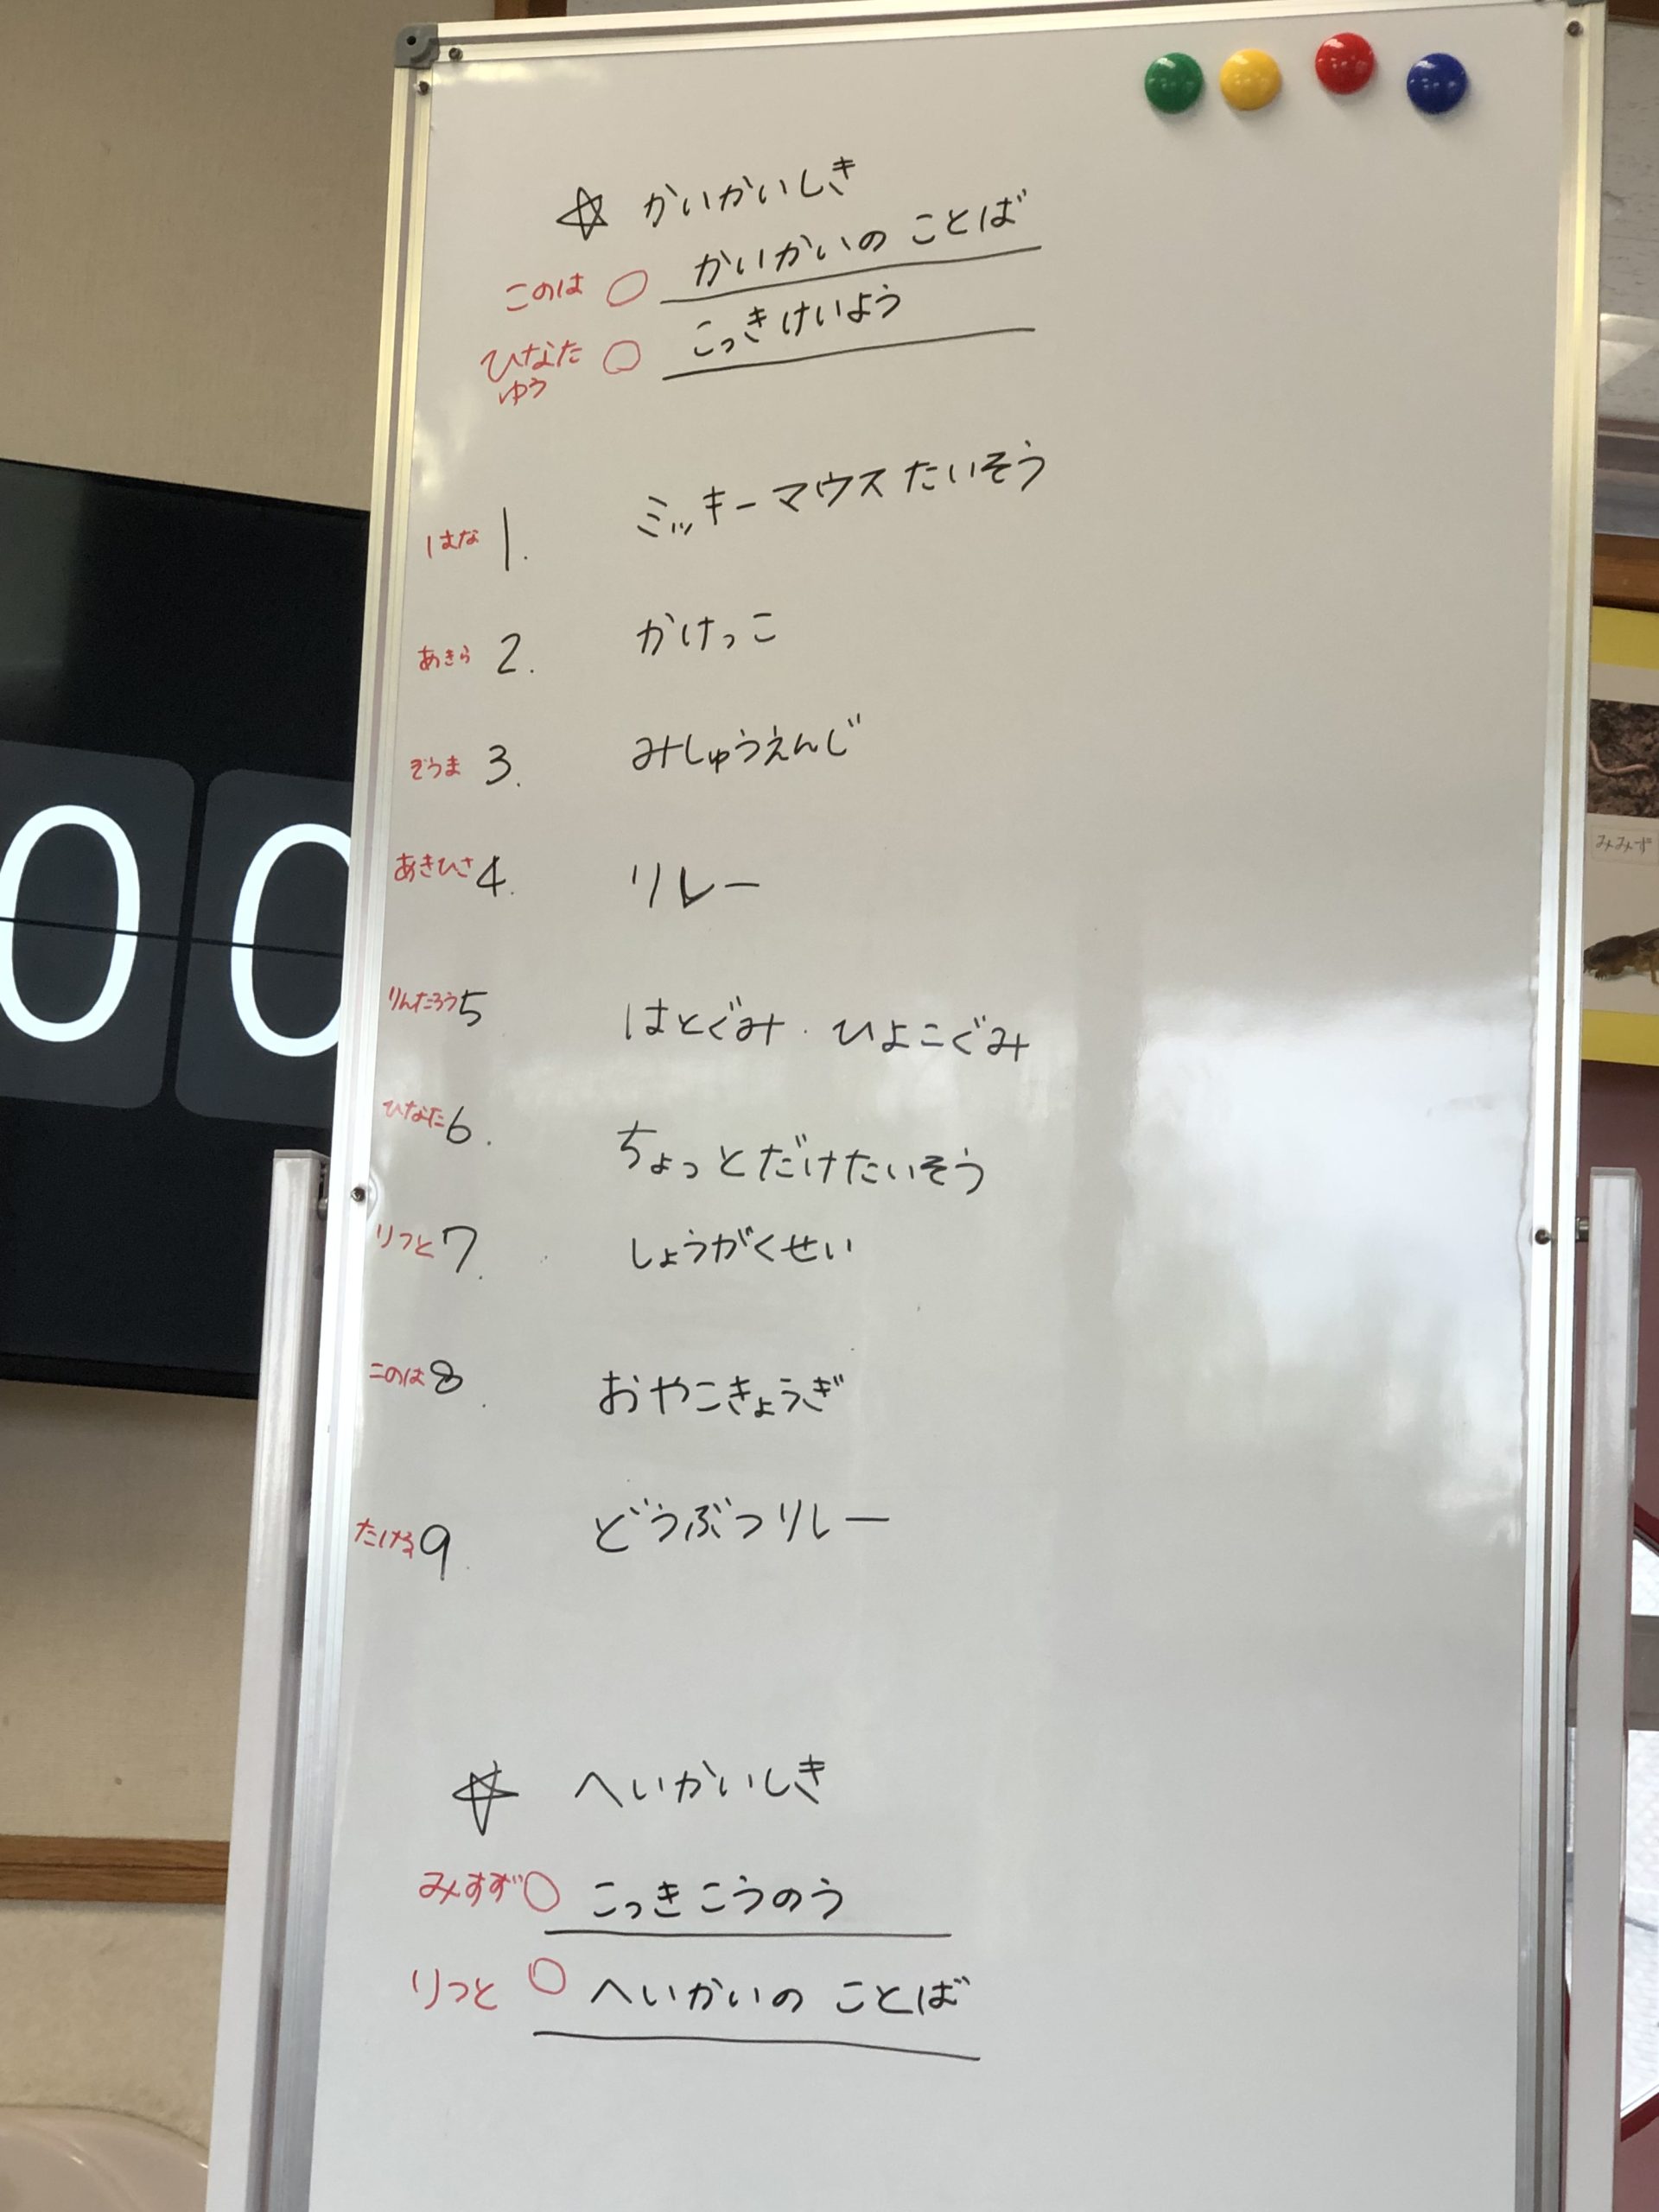 ☆ かいかいしき
このは ○ かいかいの ことば
ひなた ○ こっきけいよう
ゆう
はな 1. ミッキーマウスたいそう
あきら 2. かけっこ
そうま 3. みしゅうえんじ
あきひさ 4. リレー
りんたろう 5 はとぐみ・ひよこぐみ
ひなた 6. ちょっとだけたいそう
りっと 7. しょうがくせい
このは 8. おやこきょうぎ
たける 9. どうぶつリレー
☆ へいかいしき
みすず ○ こっきこうのう
りっと ○ へいかいの ことば
00
みみず